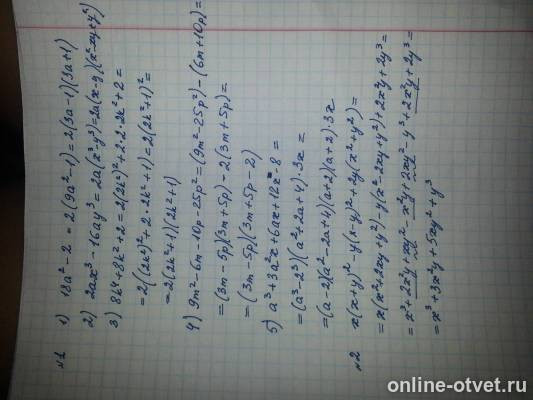 №1
1) 18a² - 2 = 2(9a² - 1) = 2(3a - 1)(3a + 1)
2) 2ax³ - 16ay³ = 2a(x³ - y³) = 2a(x - y)(x² - xy + y²)
3) 8k⁴ + 8k² + 2 = 2(2k²)² + 2·2·2k² + 2 =
= 2((2k²)² + 2·2k² + 1) = 2(2k² + 1)² =
= 2(2k² + 1)(2k² + 1)
4) 9m² - 6m - 10p - 25p² = (9m² - 25p²) - (6m + 10p) =
= (3m - 5p)(3m + 5p) - 2(3m + 5p) =
= (3m + 5p)(3m + 5p - 2)
5) a³ + 3a²x + 6ax + 12x - 8 =
= (a³ - 2³)(a² + 2a + 4)·3x =
= (a - 2)(a² - 2a + 4)(a + 2)(a + 2)·3x
№2
x(x + y)² - y(x - y)² + 2y(x² + y²) =
= x(x² + 2xy + y²) - y(x² - 2xy + y²) + 2x²y + 2y³ =
= x³ + 2x²y + xy² - x²y + 2xy² - y³ + 2x²y + 2y³ =
= x³ + 3x²y + 5xy² + y³
online-otvet.ru